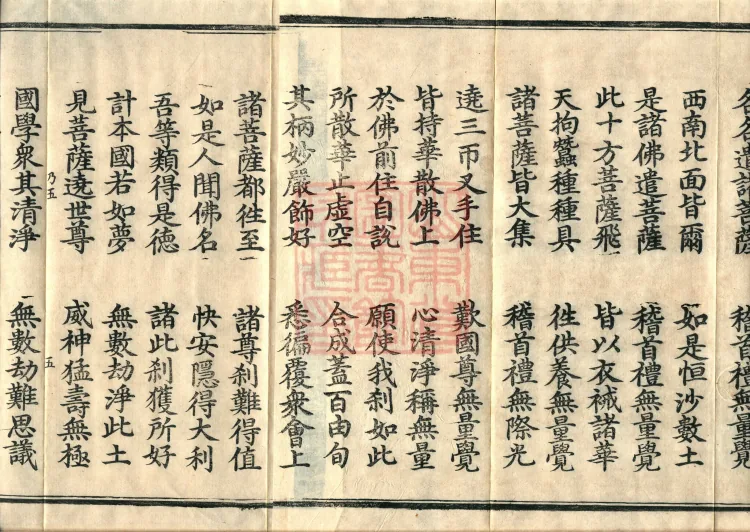 各各遣諸菩薩　稽首禮無量覺
西南北面皆爾　如是恒沙數土
是諸佛遣菩薩　稽首禮無量覺
此十方菩薩飛　皆以衣裓諸華
天拘蠶種種具　徃供養無量覺
諸菩薩皆大集　稽首禮無際光
遶三帀叉手住　歎國尊無量覺
皆持華散佛上　心清淨稱無量
於佛前住自說　願使我刹如此
所散華止虛空　合成蓋百由旬
其柄妙嚴飾好　悉徧覆衆會上
諸菩薩都徃至　諸尊刹難得值
如是人聞佛名　快安隱得大利
吾等類得是德　諸此刹獲所好
計本國若如夢　無數劫淨此土
見菩薩遶世尊　威神猛壽無極
乃五　五
國學衆其清淨　無數劫難思議